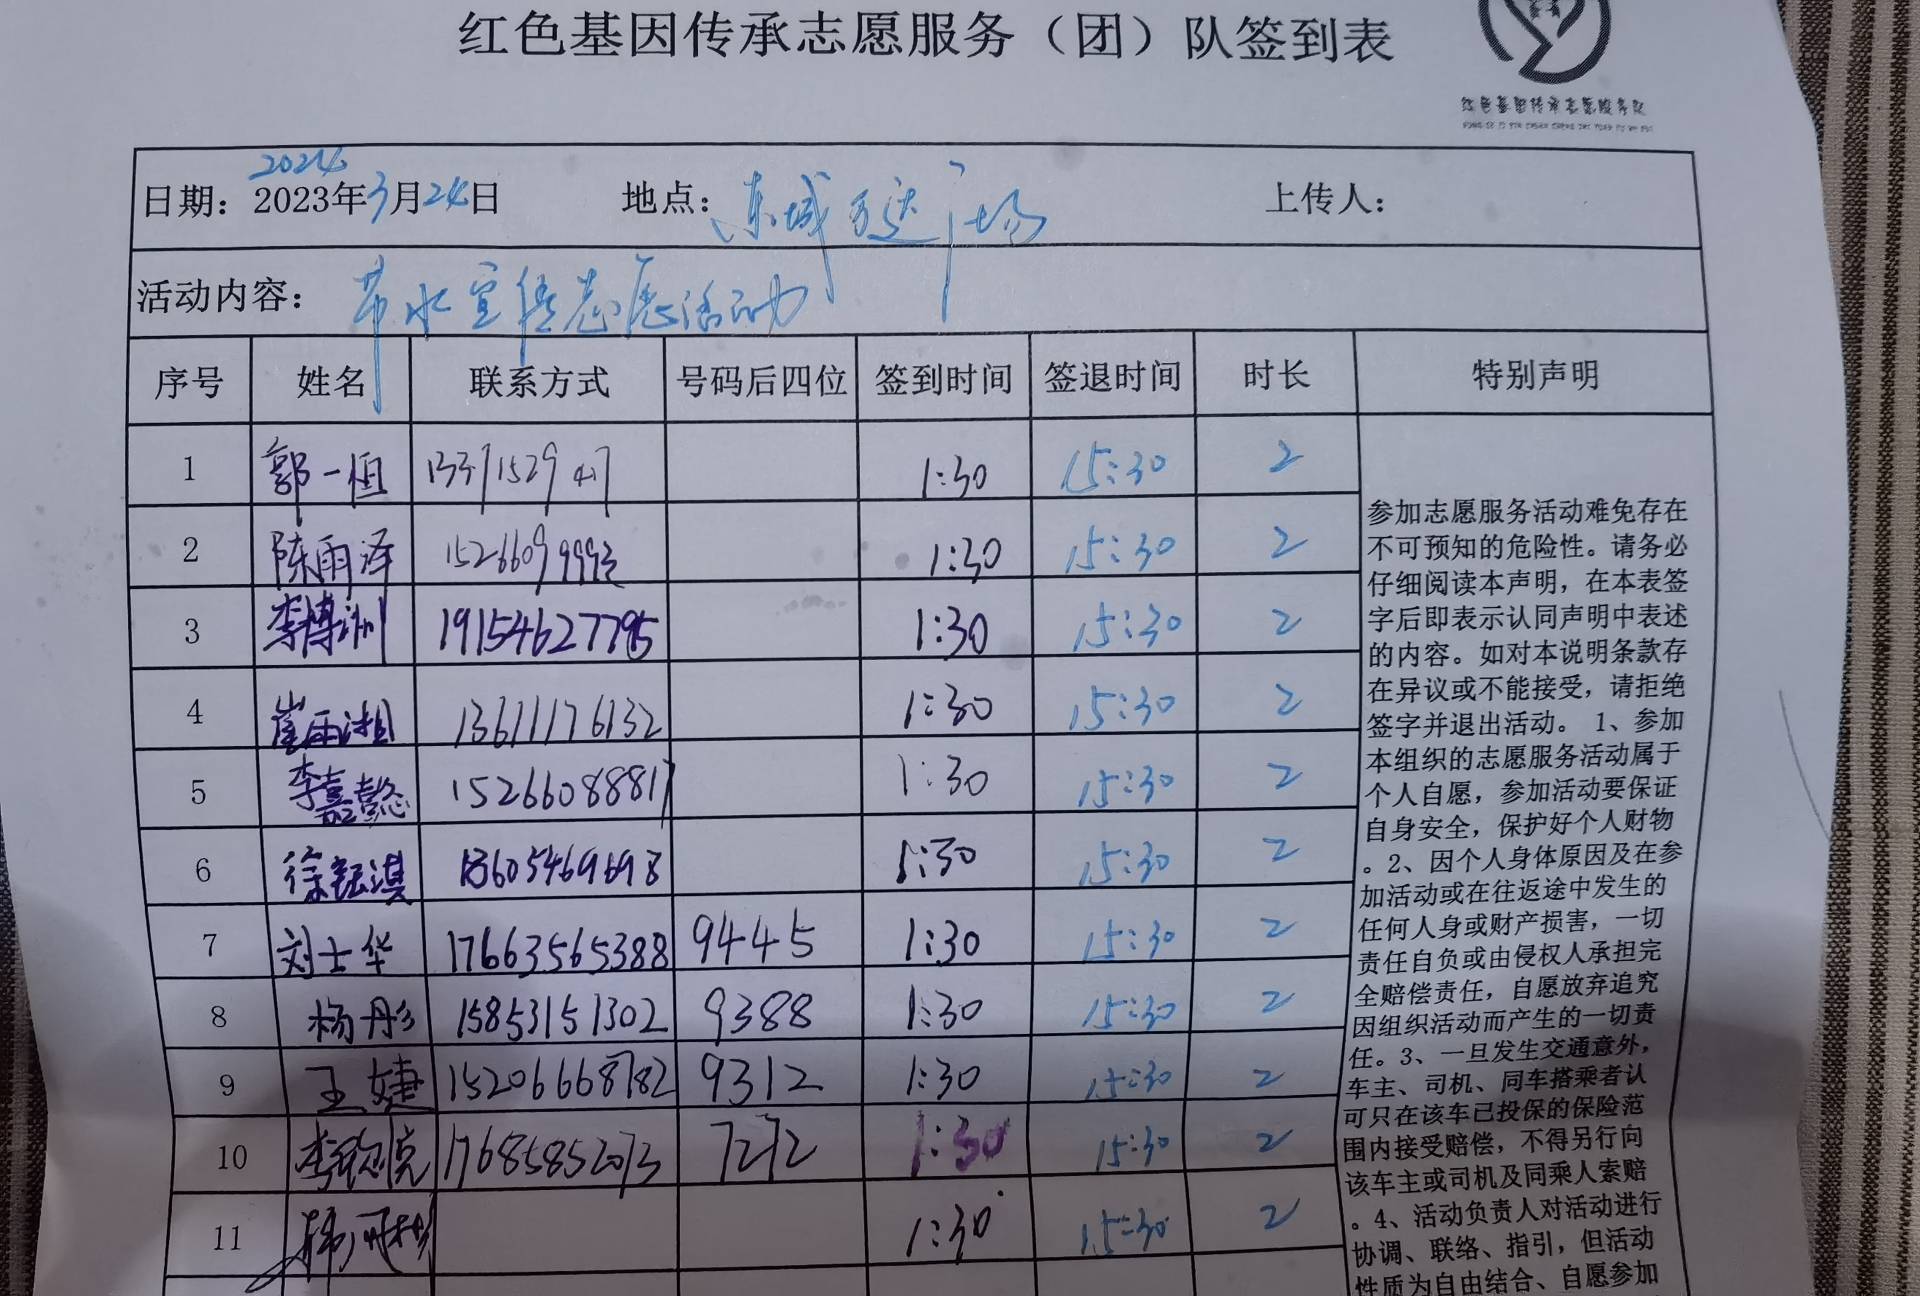 红色基因传承志愿服务（团）队签到表
红色基因传承志愿服务队
2024
日期：2023年3月24日 地点：东城万达广场 上传人：
活动内容：节水宣传志愿活动
序号 姓名 联系方式 号码后四位 签到时间 签退时间 时长 特别声明
1 郭一恒 1:30 15:30 2
2 陈雨泽 1:30 15:30 2
3 李博洲 19154627795 1:30 15:30 2
4 崔雨湘 13611176132 1:30 15:30 2
5 李嘉懿 15266088817 1:30 15:30 2
6 13605469698 1:30 15:30 2
7 刘士华 17663565388 9445 1:30 15:30 2
8 杨彤 15853151302 9388 1:30 15:30 2
9 王婕 15206668782 9312 1:30 15:30 2
10 17685852073 7272 1:30 15:30 2
11 1:30 15:30 2
参加志愿服务活动难免存在
不可预知的危险性。请务必
仔细阅读本声明，在本表签
字后即表示认同声明中表述
的内容。如对本说明条款存
在异议或不能接受，请拒绝
签字并退出活动。 1、参加
本组织的志愿服务活动属于
个人自愿，参加活动要保证
自身安全，保护好个人财物
。2、因个人身体原因及在参
加活动或在往返途中发生的
任何人身或财产损害，一切
责任自负或由侵权人承担完
全赔偿责任，自愿放弃追究
因组织活动而产生的一切责
任。3、一旦发生交通意外，
车主、司机、同车搭乘者认
可只在该车已投保的保险范
围内接受赔偿，不得另行向
该车主或司机及同乘人索赔
。4、活动负责人对活动进行
协调、联络、指引，但活动
性质为自由结合、自愿参加